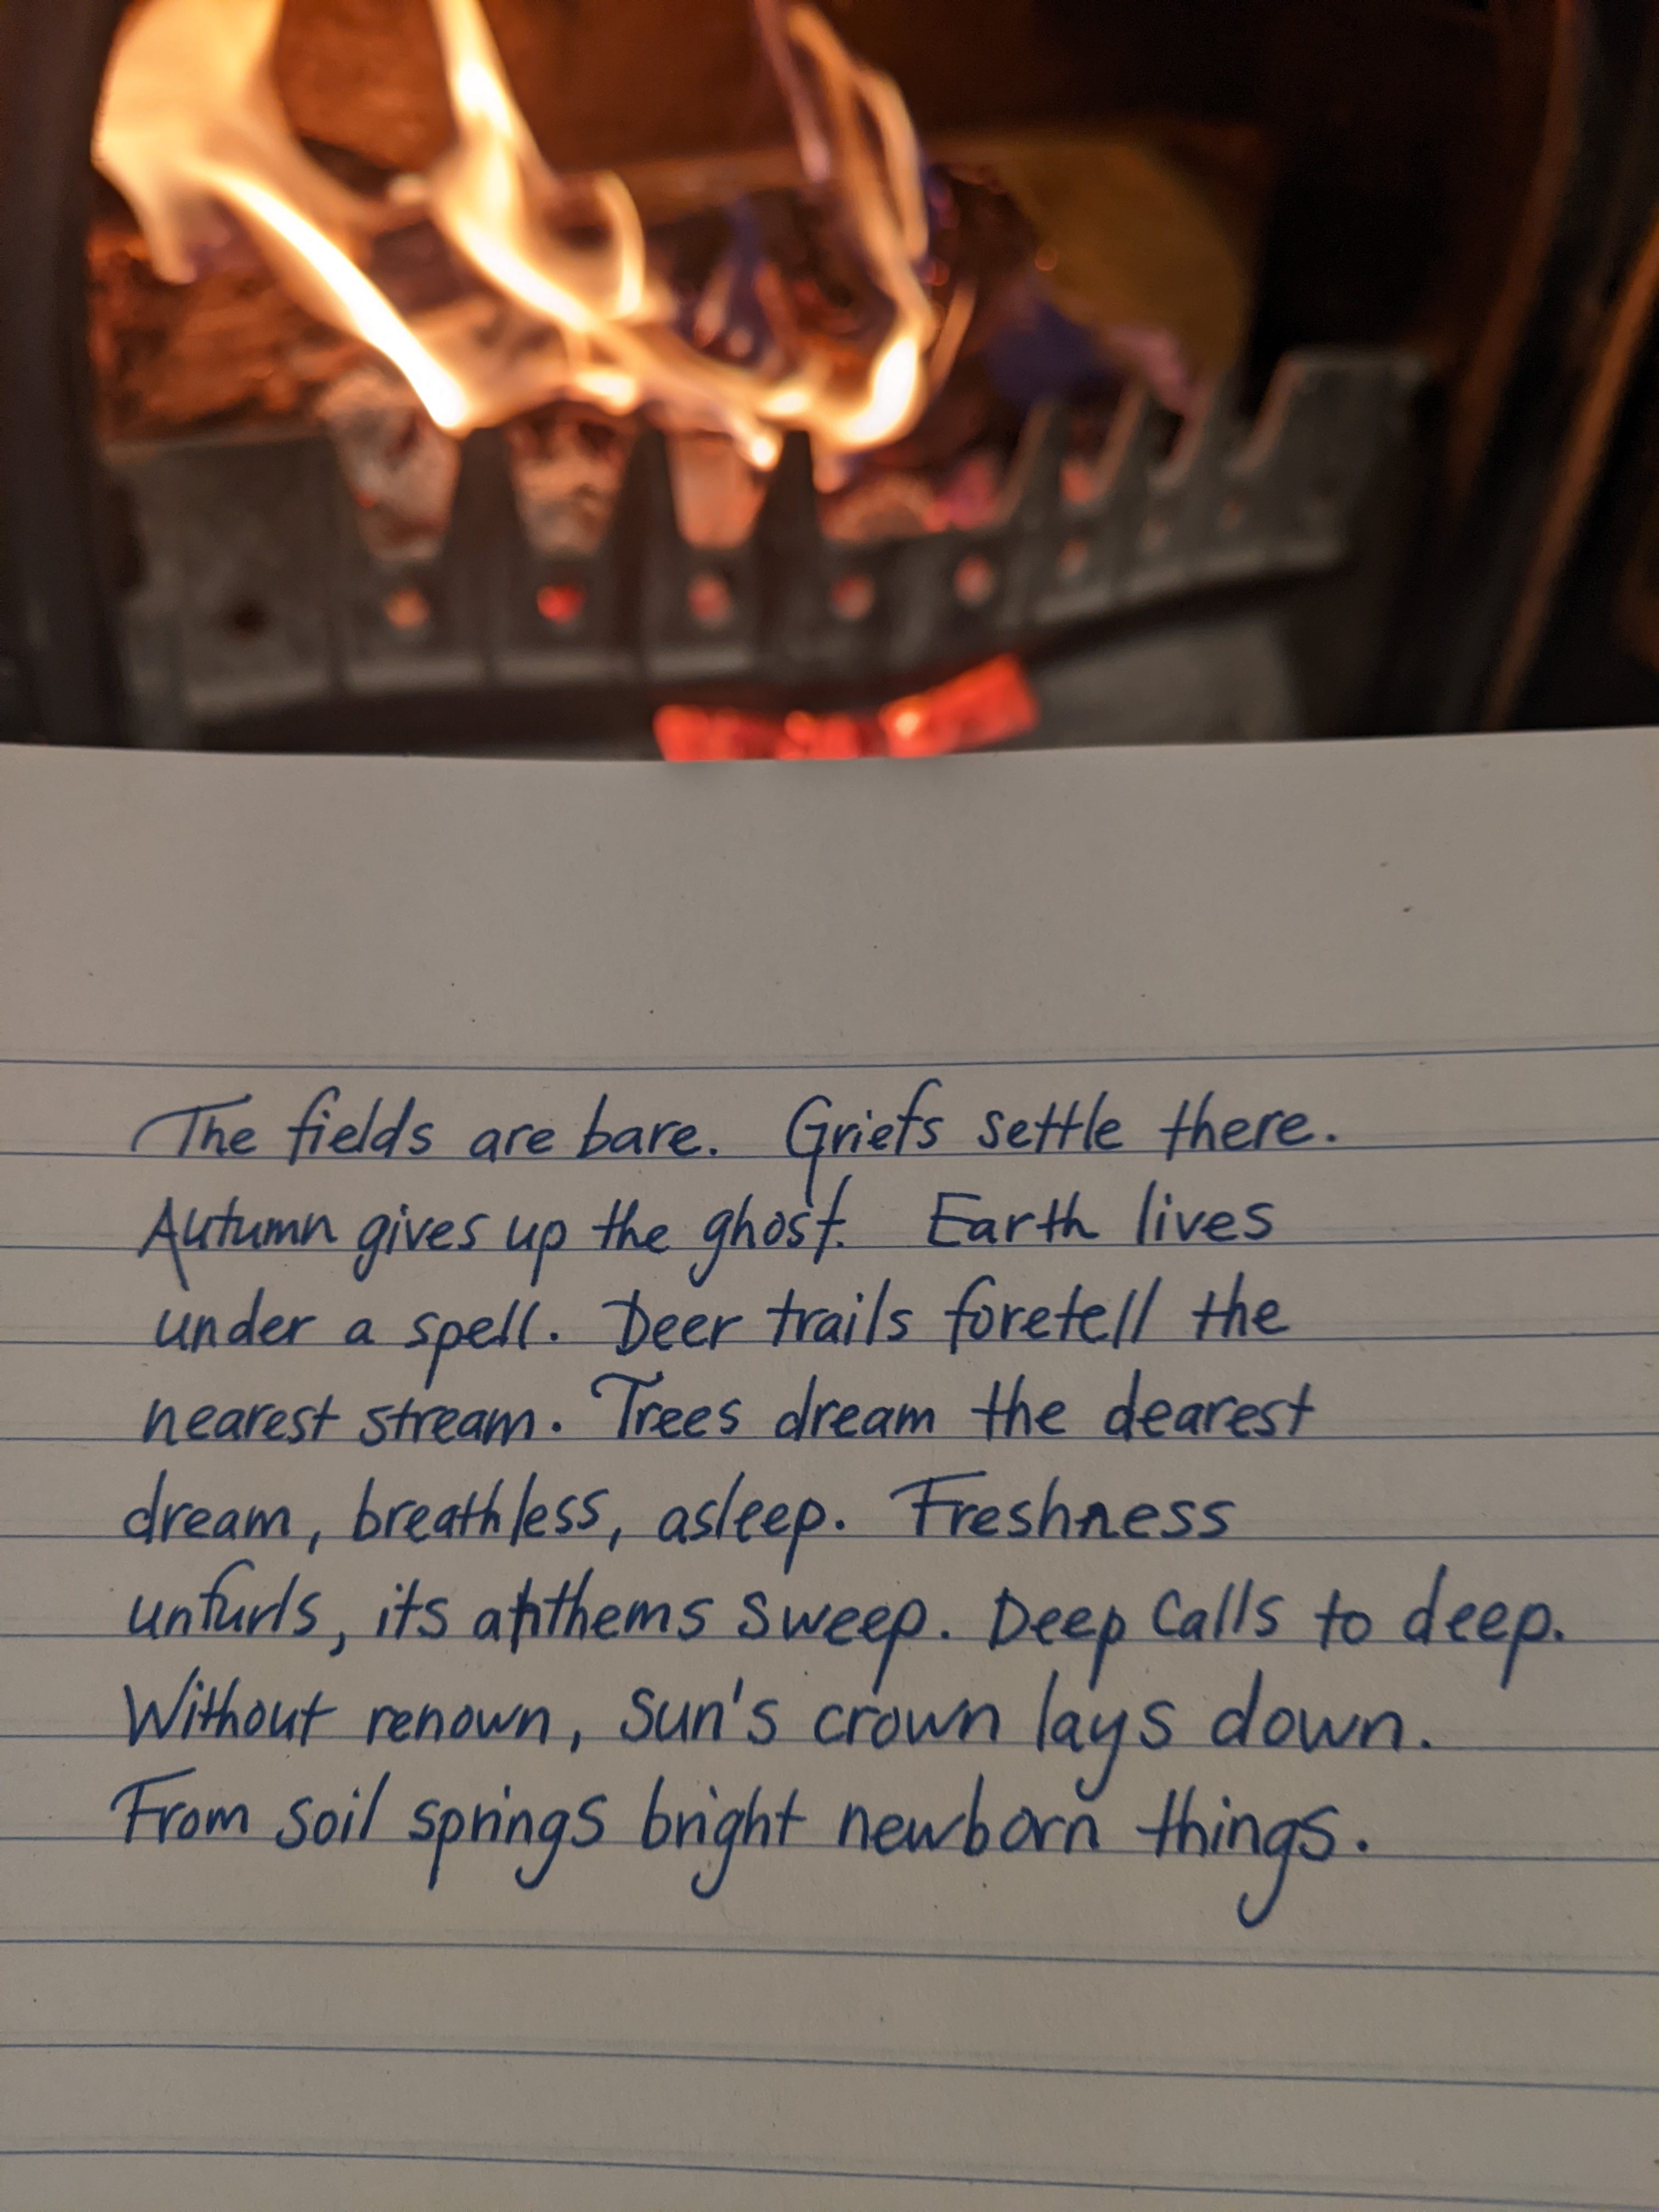 The fields are bare. Griefs settle there.
Autumn gives up the ghost. Earth lives
under a spell. Deer trails foretell the
nearest stream. Trees dream the dearest
dream, breathless, asleep. Freshness
unfurls, its anthems sweep. Deep calls to deep.
Without renown, Sun's crown lays down.
From soil springs bright newborn things.